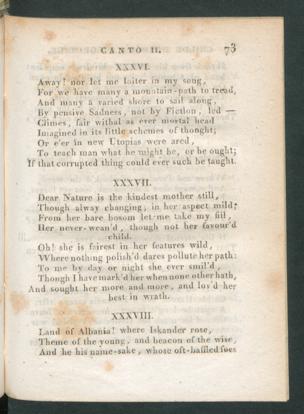 CANTO II. 73
XXXVI.
Away! nor let me loiter in my song,
For we have many a mountain-path to tread,
And many a varied shore to sail along,
By pensive Sadness, not by Fiction, led —
Climes, fair withal as ever mortal head
Imagined in its little schemes of thought;
Or e'er in new Utopias were ared,
To teach man what he might be, or he ought;
If that corrupted thing could ever such be taught.
XXXVII.
Dear Nature is the kindest mother still,
Though alway changing, in her aspect mild;
From her bare bosom let me take my fill,
Her never-wean'd, though not her favour'd
child.
Oh! she is fairest in her features wild,
Where nothing polish'd dares pollute her path:
To me by day or night she ever smil'd,
Though I have mark'd her when none other hath,
And sought her more and more, and lov'd her
best in wrath.
XXXVIII.
Land of Albania! where Iskander rose,
Theme of the young, and beacon of the wise,
And he his name-sake, whose oft-baffled foes